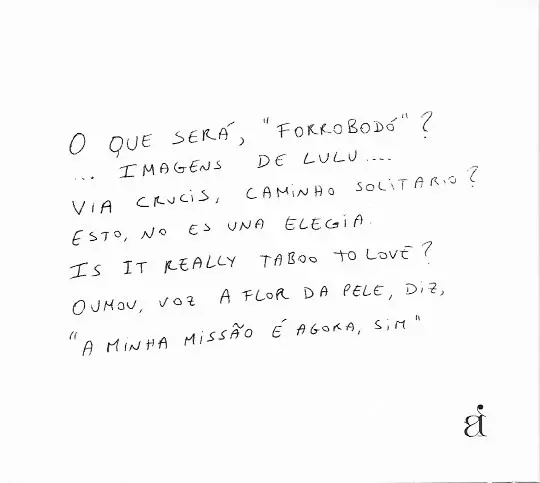 O QUE SERÁ, "FORROBODÓ"?
... IMAGENS DE LULU....
VIA CRUCIS, CAMINHO SOLITARIO?
ESTO, NO ES UNA ELEGIA.
IS IT REALLY TABOO TO LOVE?
OUMOU, VOZ A FLOR DA PELE, DIZ,
"A MINHA MISSÃO É AGORA, SIM"